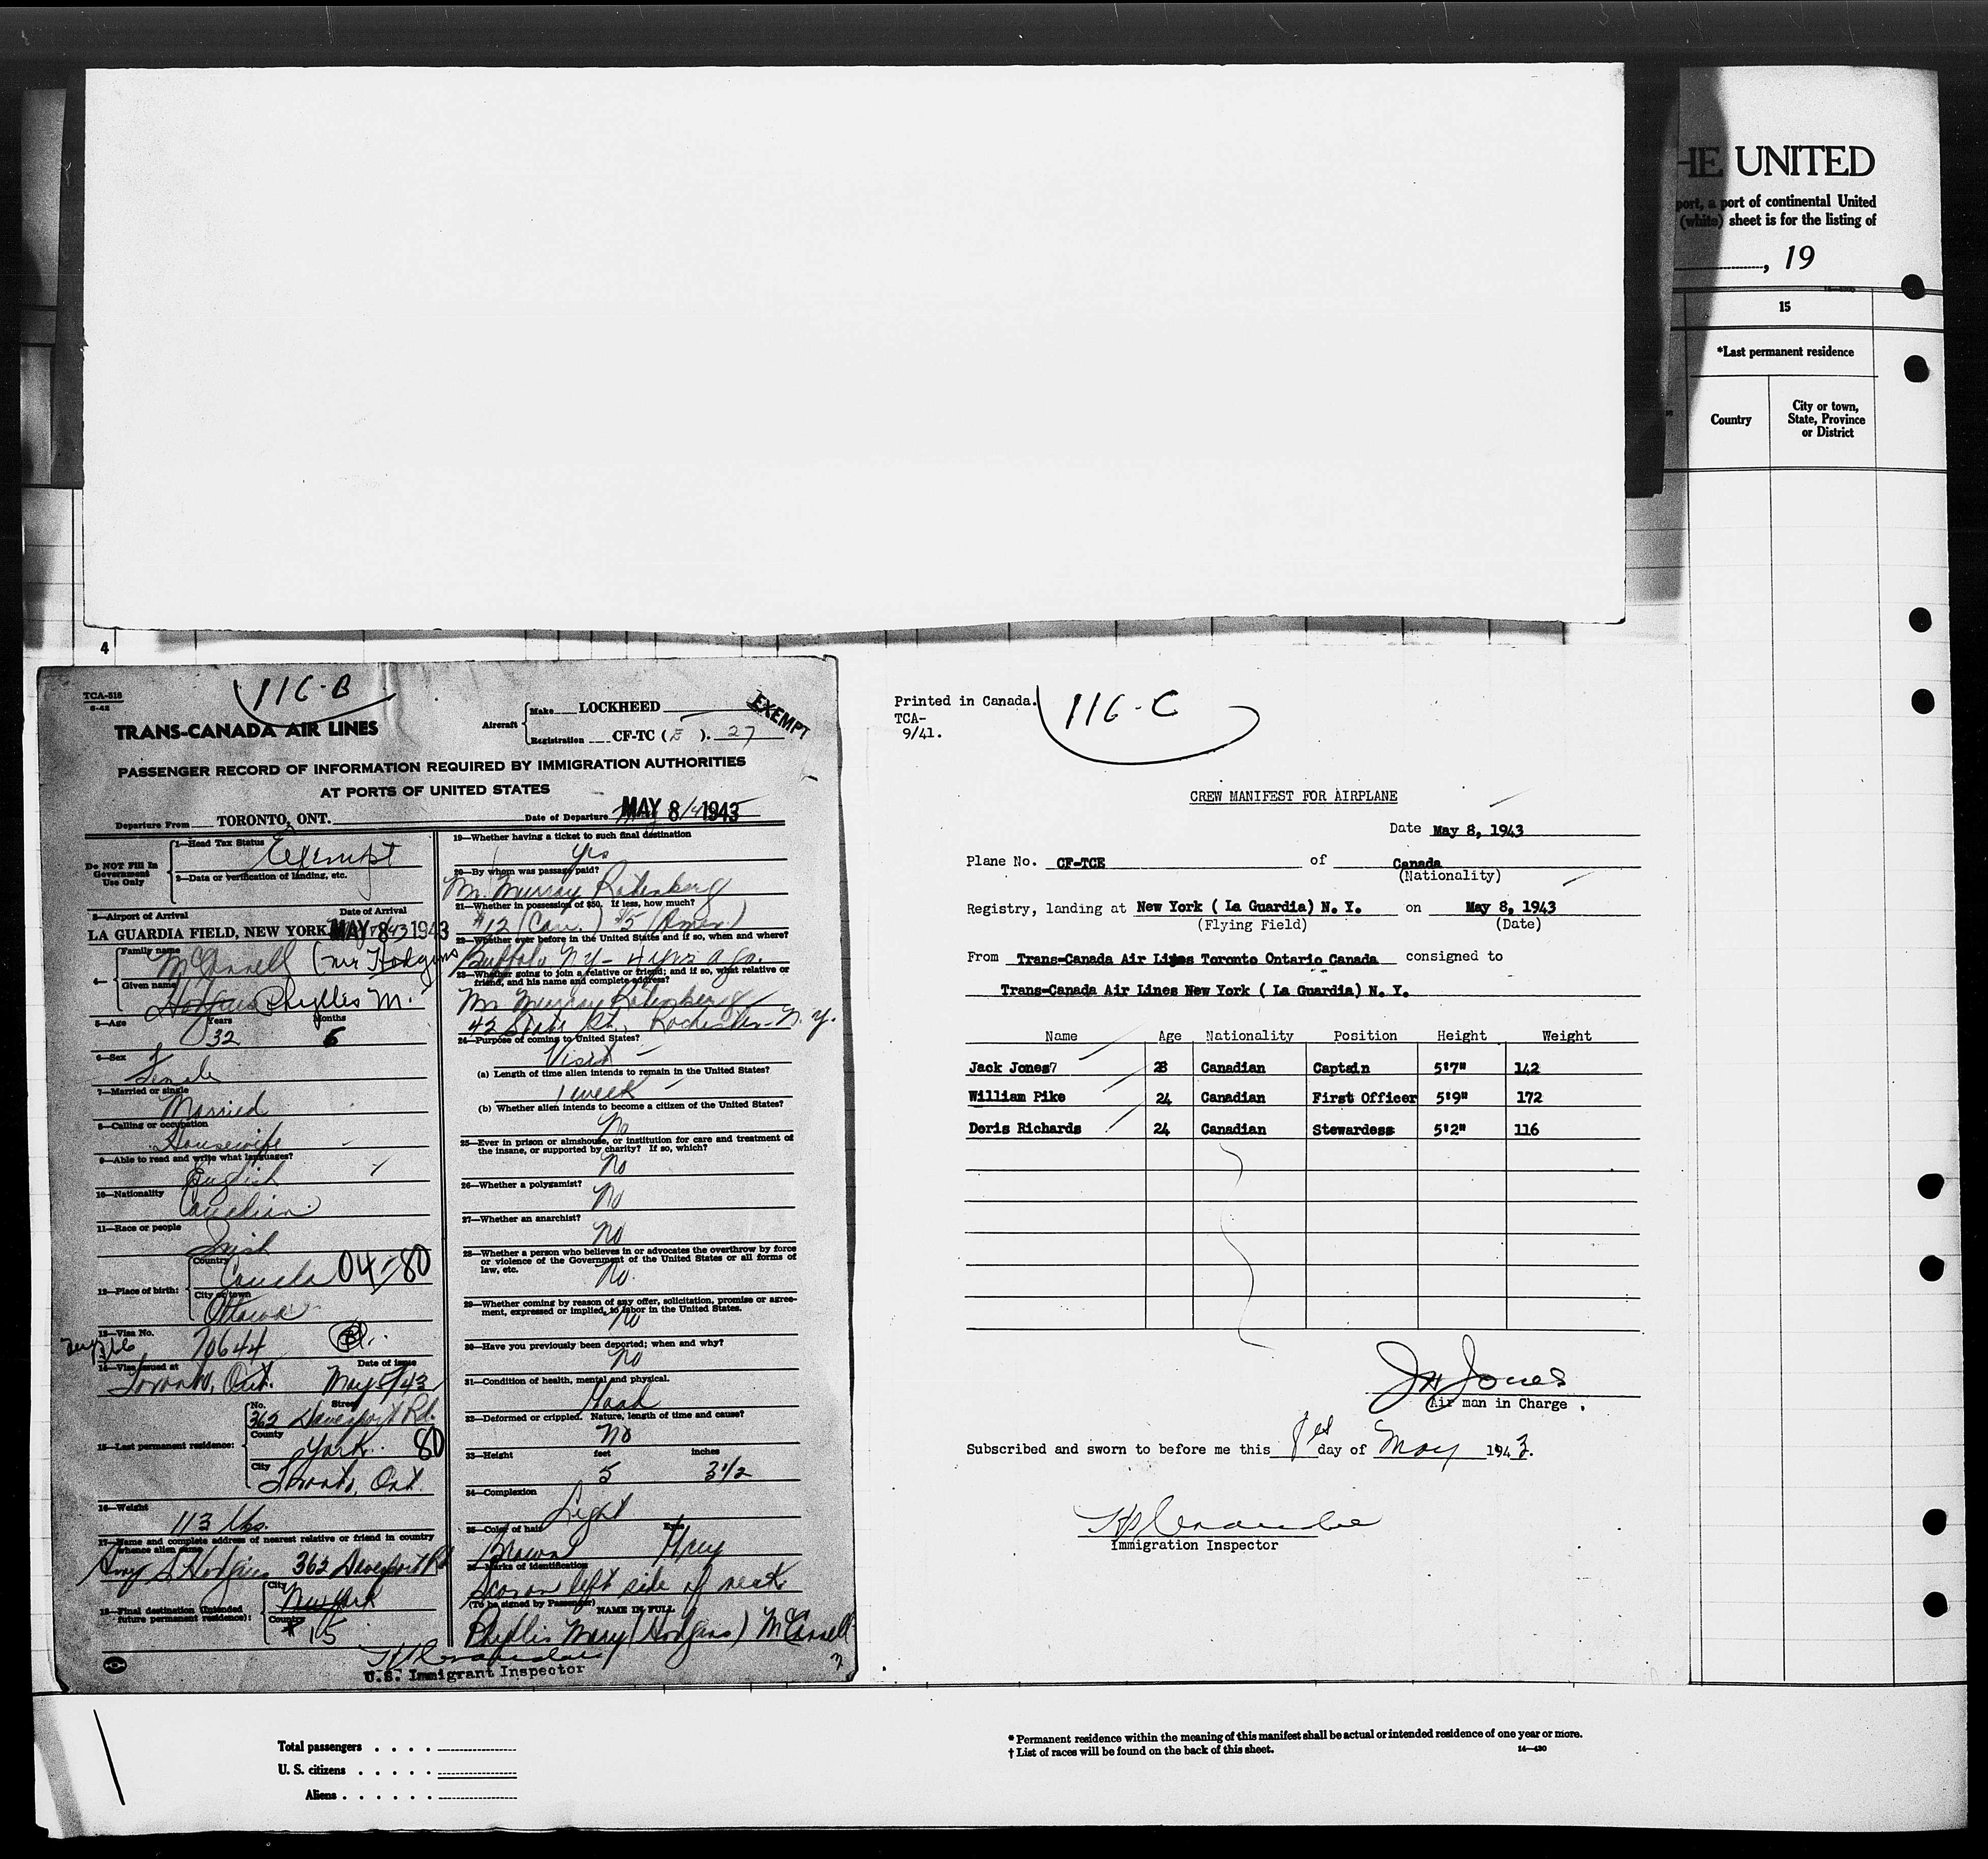 HE UNITED
port, a port of continental United
(white) sheet is for the listing of
, 19
15
*Last permanent residence
Country
City or town,
State, Province
or District
4
TCA-518
8-42
116-B
TRANS-CANADA AIR LINES
Aircraft
Make LOCKHEED
Registration CF-TC (E). 27
EXEMPT
PASSENGER RECORD OF INFORMATION REQUIRED BY IMMIGRATION AUTHORITIES
AT PORTS OF UNITED STATES
Departure From TORONTO, ONT. Date of Departure MAY 8 1943
Do NOT Fill In
Government
Use Only
1—Head Tax Status
Exempt
2—Data or verification of landing, etc.
3—Airport of Arrival Date of Arrival
LA GUARDIA FIELD, NEW YORK MAY 8 1943
4—
Family name
McConnell (nee Hodgins
Given name
Hodgins Phyllis M.
5—Age Years Months
32 6
6—Sex
Female
7—Married or single
Married
8—Calling or occupation
Housewife
9—Able to read and write what languages?
English
10—Nationality
Canadian
11—Race or people
Irish
12—Place of birth:
Country
Canada 04-80
City or town
Ottawa
13—Visa No.
70644
14—Visa issued at Date of issue
Toronto, Ont. May 5/43
15—Last permanent residence:
No. Street
362 Davenport Rd.
County
York 80
City
Toronto, Ont.
16—Weight
113 lbs.
17—Name and complete address of nearest relative or friend in country
whence alien came
S Hodgins 362 Davenport Rd
18—Final destination (Intended
future permanent residence):
City
New York
Country
15
19—Whether having a ticket to such final destination
Yes
20—By whom was passage paid?
Mr. Murray Rotenberg
21—Whether in possession of $50. If less, how much?
$12 (Can.) $5 (Amer)
22—Whether ever before in the United States and if so, when and where?
Buffalo N.Y. - 4 yrs ago.
23—Whether going to join a relative or friend; and if so, what relative or
friend, and his name and complete address?
Mr Murray Rotenberg
42 State St., Rochester-N.Y.
24—Purpose of coming to United States?
Visit
(a) Length of time alien intends to remain in the United States?
1 week
(b) Whether alien intends to become a citizen of the United States?
No
25—Ever in prison or almshouse, or institution for care and treatment of
the insane, or supported by charity? If so, which?
No
26—Whether a polygamist?
No
27—Whether an anarchist?
No
28—Whether a person who believes in or advocates the overthrow by force
or violence of the Government of the United States or all forms of
law, etc.
No.
29—Whether coming by reason of any offer, solicitation, promise or agree-
ment, expressed or implied, to labor in the United States.
No
30—Have you previously been deported; when and why?
No
31—Condition of health, mental and physical.
Good
32—Deformed or crippled. Nature, length of time and cause?
No
33—Height feet inches
5 3 1/2
34—Complexion
Light
35—Color of hair Eyes
Brown Grey
36—Marks of identification
Scar on left side of neck
(To be signed by Passenger) NAME IN FULL
Phyllis Mary (Hodgins) McConnell
U.S. Immigrant Inspector
Printed in Canada.
TCA-
9/41.
116-C
CREW MANIFEST FOR AIRPLANE
Date May 8, 1943
Plane No. CF-TCE of Canada
(Nationality)
Registry, landing at New York ( La Guardia) N. Y. on May 8, 1943
(Flying Field) (Date)
From Trans-Canada Air Lines Toronto Ontario Canada consigned to
Trans-Canada Air Lines New York ( La Guardia) N. Y.
Name Age Nationality Position Height Weight
Jack Jones 28 Canadian Captain 5'7" 142
William Pike 24 Canadian First Officer 5'9" 172
Doris Richards 24 Canadian Stewardess 5'2" 116
J H Jones
Air man in Charge .
Subscribed and sworn to before me this 8 day of May 1943.
Immigration Inspector
Total passengers . . . .
U. S. citizens . . . . .
Aliens . . . . . .
* Permanent residence within the meaning of this manifest shall be actual or intended residence of one year or more.
† List of races will be found on the back of this sheet. 14—430